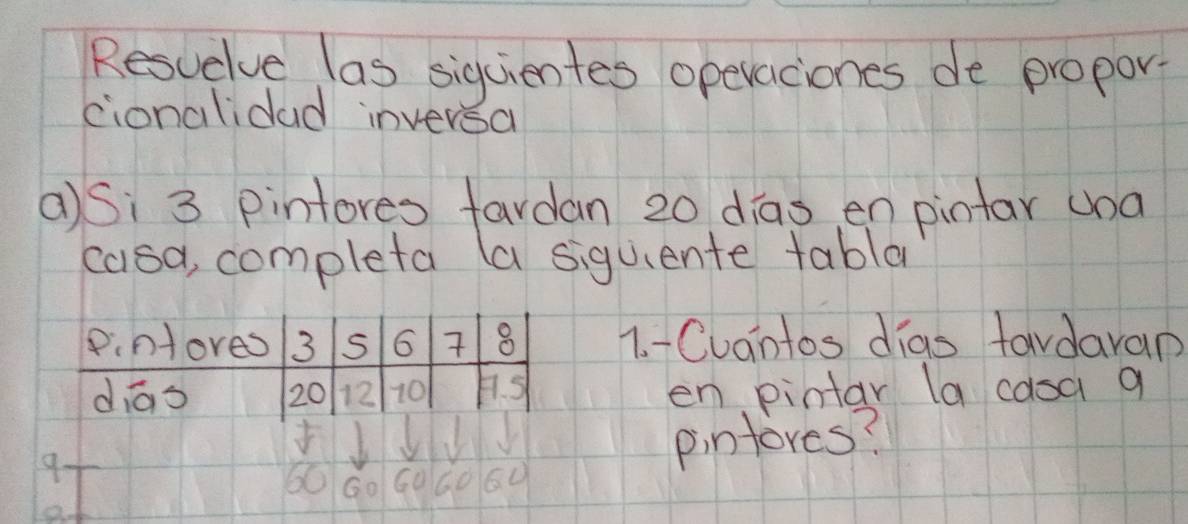 Resuelve las siguientes operaciones de propor-
cionalidad inversa
a) Si 3 pintores tardan 20 días en pintar una
casa, completa la siguiente tabla
Pintores 3 5 6 7 8
días 20 12 10 7.5
60 60 60 60 60
1.- Cuántos días tardaran
en pintar la casa 9
pintores?
9